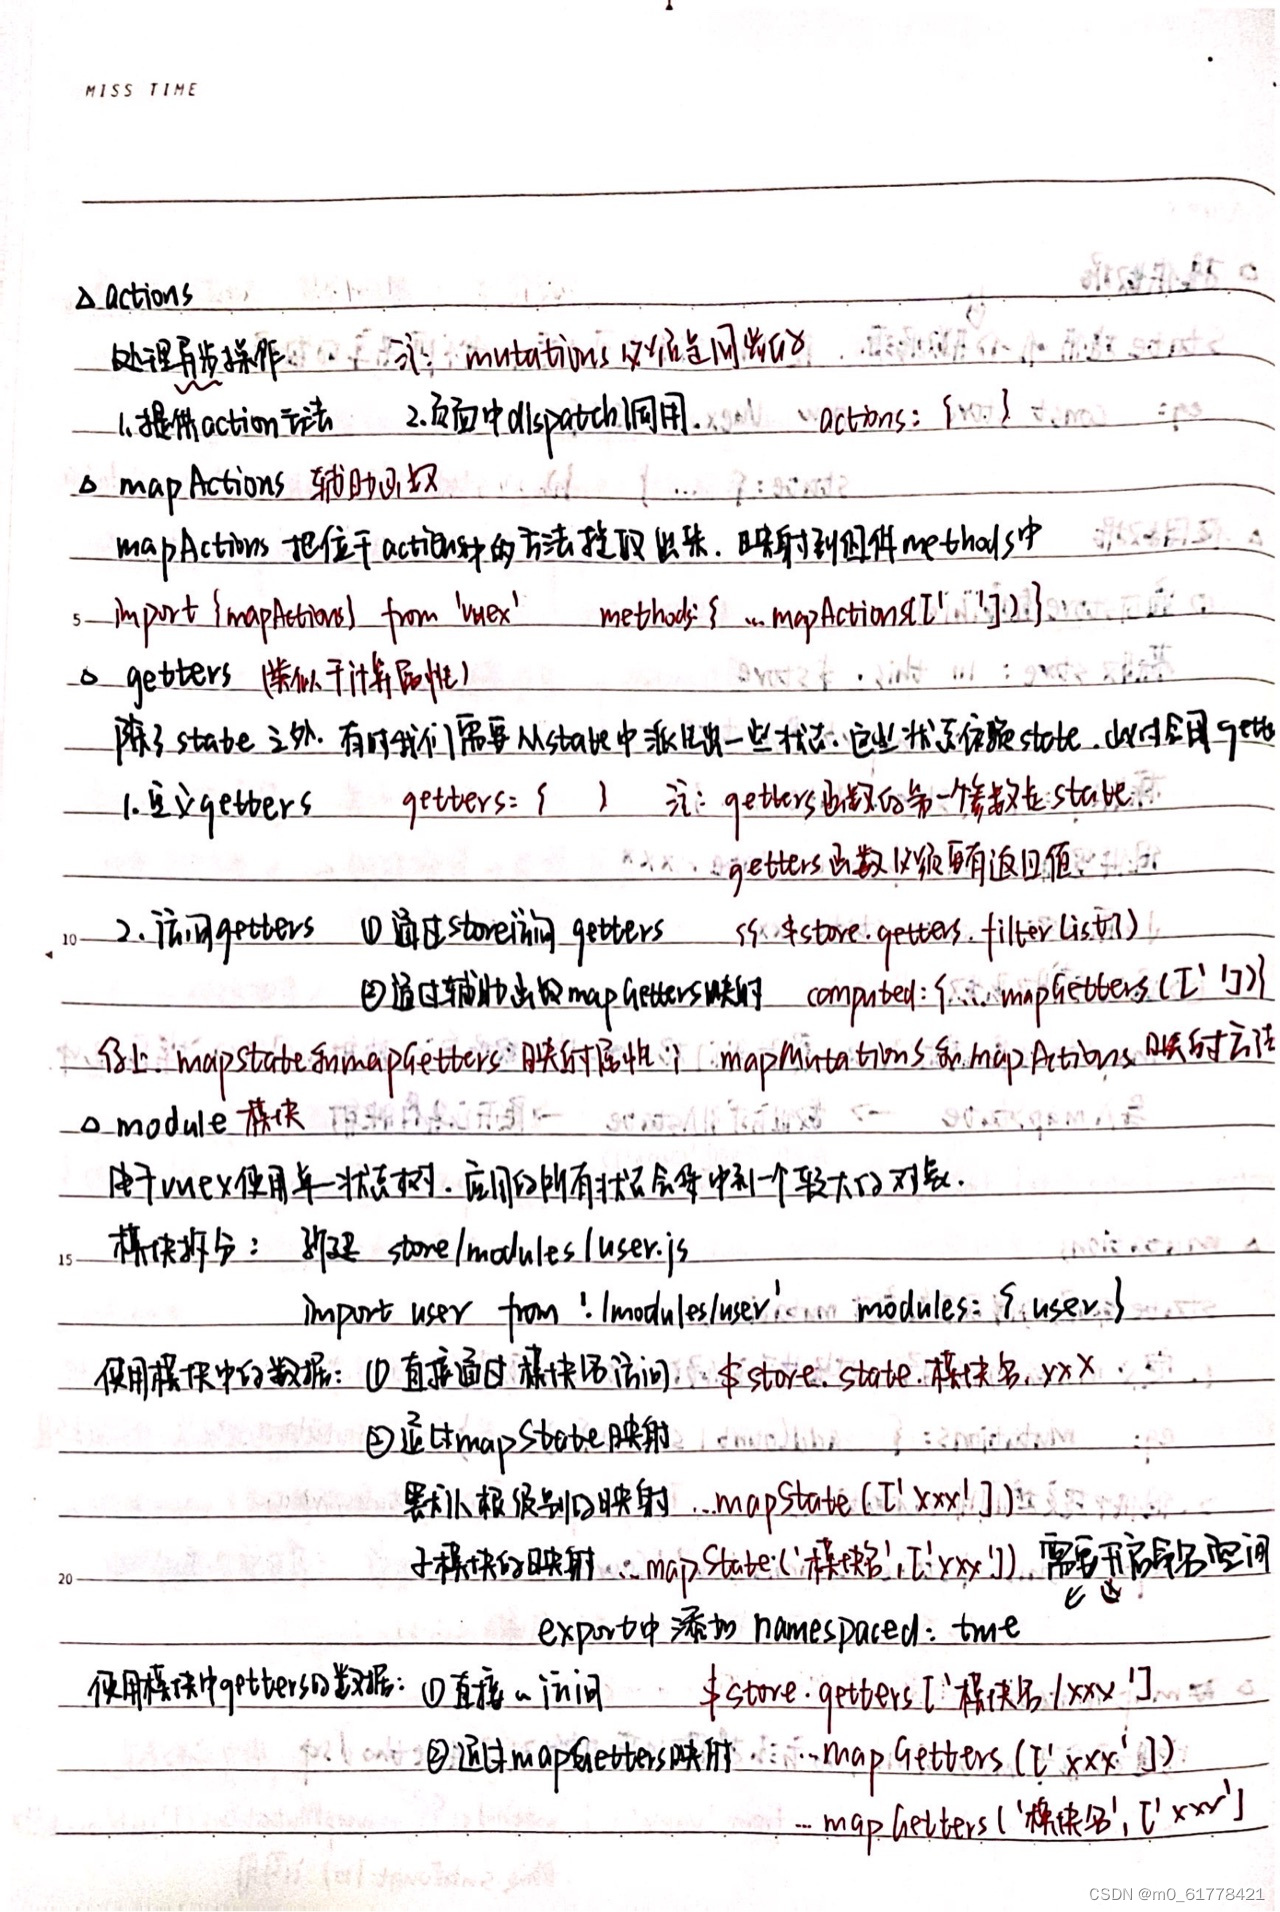 MISS TIME
△ actions
处理异步操作. 注: mutations 必须是同步的
1.提供action方法 2.页面中dispatch调用. actions: { }
△ mapActions 辅助函数
mapActions 把位于actions中的方法提取出来, 映射到组件methods中
5 import {mapActions} from 'vuex' methods: { ...mapActions(['']) }
△ getters (类似于计算属性)
除了state之外, 有时我们需要从state中派生出一些状态, 这些状态依赖state, 此时会用getters
1.定义getters getters: { } 注: getters函数的第一个参数是state
getters函数必须要有返回值
10 2.访问getters ①通过store访问getters {{ $store.getters.filterList }}
②通过辅助函数mapGetters映射 computed: {...mapGetters([' '])}
综上: mapState和mapGetters 映射属性; mapMutations和mapActions 映射方法
△ module 模块
由于vuex使用单一状态树, 应用的所有状态会集中到一个较大的对象.
15 模块拆分: 新建 store/modules/user.js
import user from './modules/user' modules: { user }
使用模块中的数据: ①直接通过模块名访问 $store.state.模块名.xxx
②通过mapState映射
默认根级别的映射 ...mapState(['xxx'])
20 子模块的映射 ...mapState('模块名', ['xxx']) 需要开启命名空间
export中添加 namespaced: true
使用模块中getters的数据: ①直接访问 $store.getters['模块名/xxx']
②通过mapGetters映射 ...mapGetters(['xxx'])
...mapGetters('模块名', ['xxx']
CSDN @m0_61778421